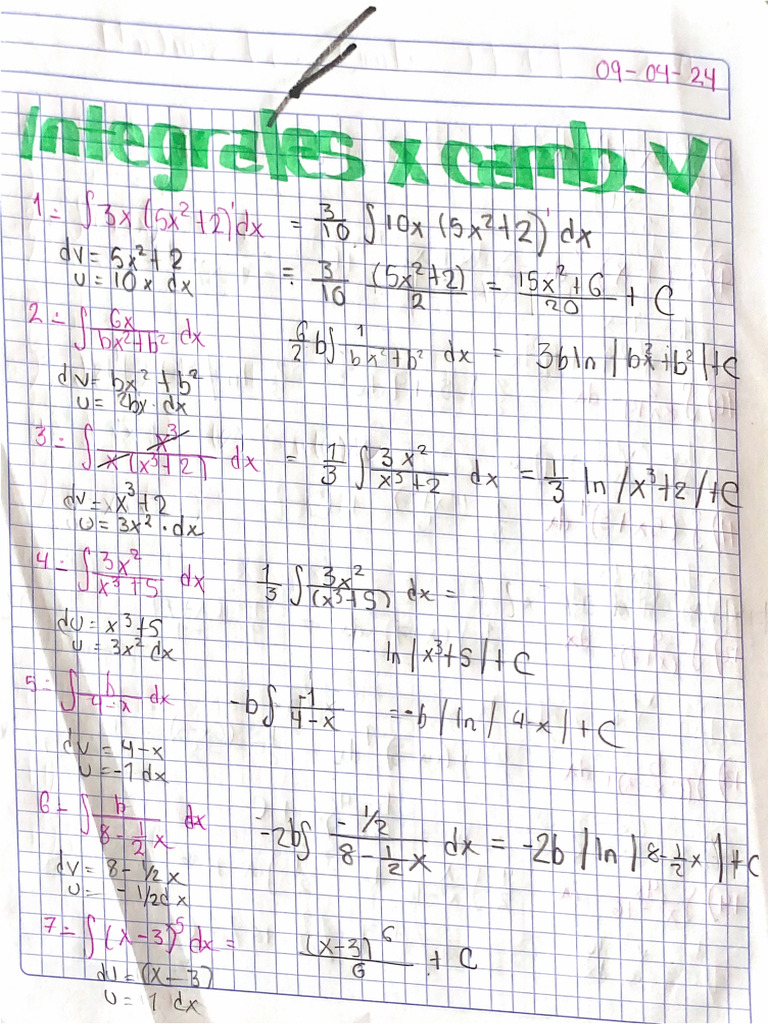 09-04-24
Integrales x camb. V
1= ∫ 3x (5x²+2)' dx = 3/10 ∫ 10x (5x²+2)' dx
dv = 5x²+2
u = 10x dx
= 3/10 (5x²+2)/2 = 15x²+6/20 + C
2= ∫ 6x/bx²+b² dx 6/2 b ∫ 1/bx²+b² dx = 3b ln |bx²+b²| + C
dv = bx² + b²
u = 2bx · dx
3= ∫ x³/x(x³+2) dx = 1/3 ∫ 3x²/x³+2 dx = 1/3 ln |x³+2| + C
dv = x³+2
u = 3x² · dx
4= ∫ 3x²/x³+5 dx 1/3 ∫ 3x²/(x³+5) dx =
du = x³+5
u = 3x² dx
ln |x³+5| + C
5= ∫ b/4-x dx -b ∫ -1/4-x = -b |ln| 4-x| + C
dv = 4-x
u = -1 dx
6= ∫ b/8-1/2x dx -2b ∫ -1/2/8-1/2x dx = -2b |ln| 8-1/2x | + C
dv = 8-1/2x
u = -1/2dx
7= ∫ (x-3)⁵ dx = (x-3)⁶/6 + C
du = (x-3)
u = 1 dx